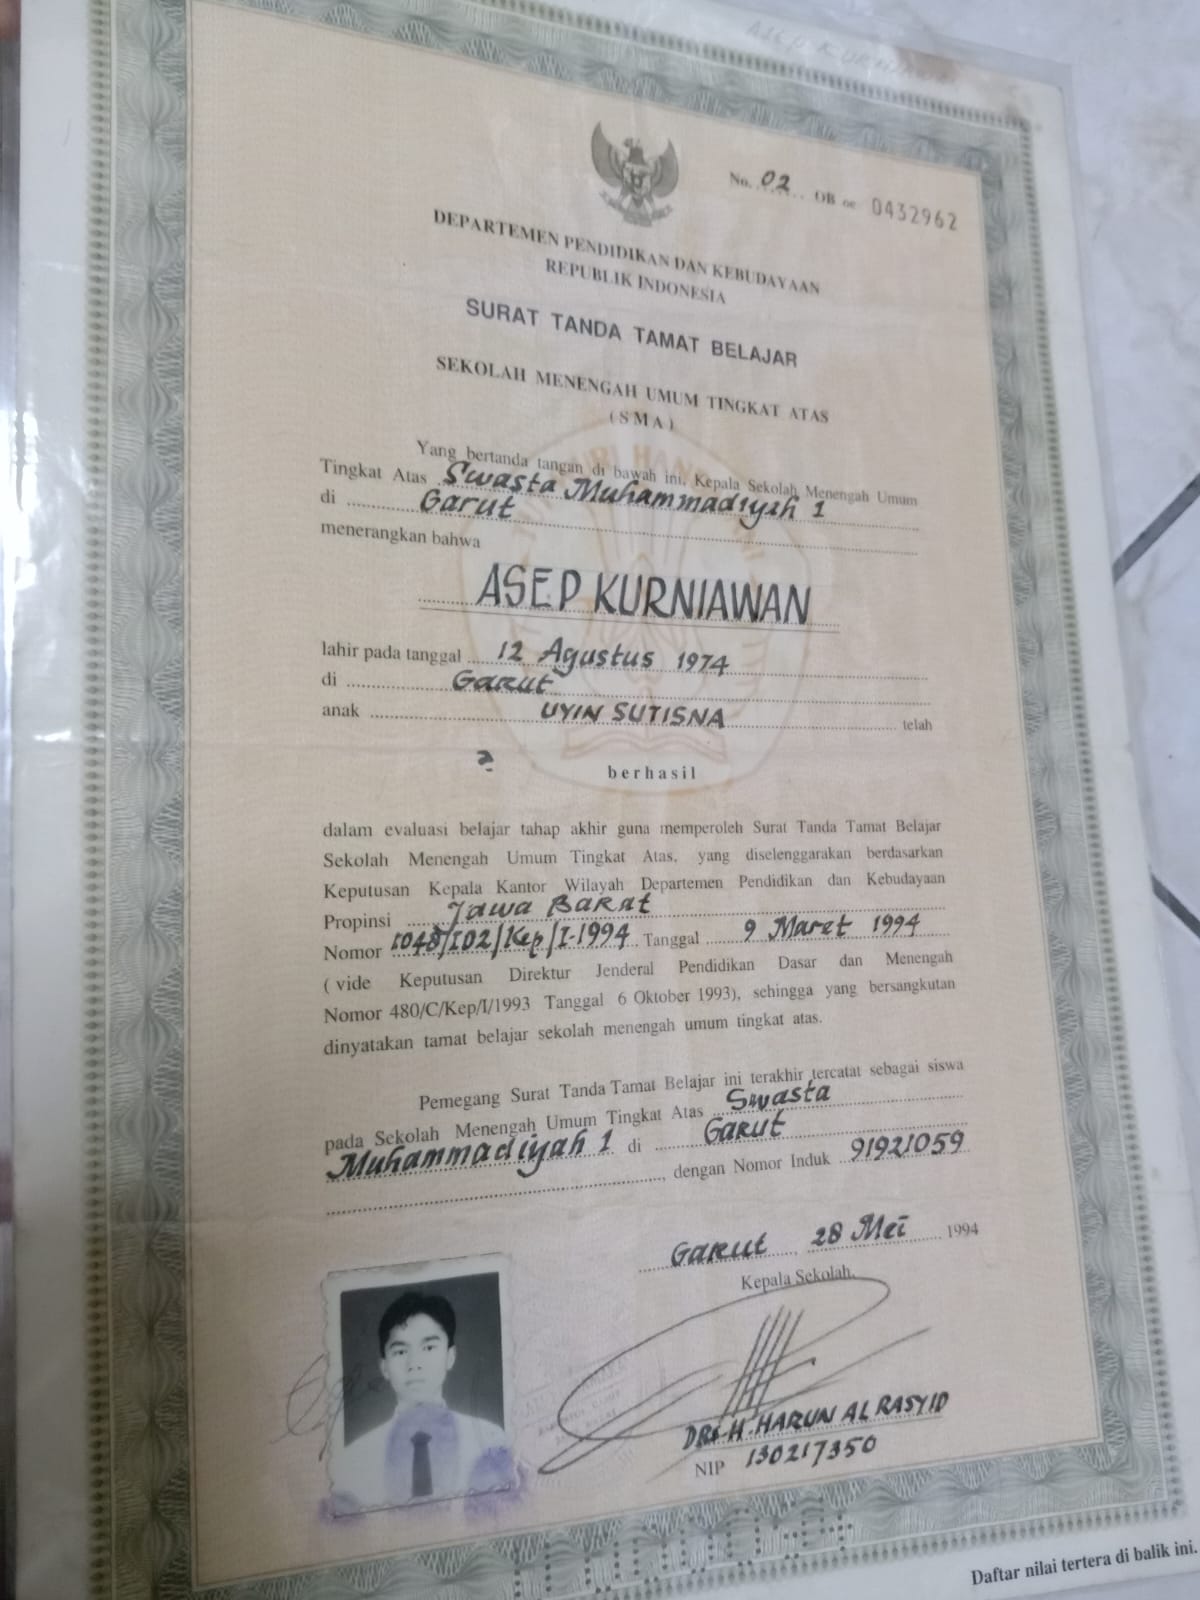 ASEP KURNIAWAN
No. 02 OB oe 0432962
DEPARTEMEN PENDIDIKAN DAN KEBUDAYAAN
REPUBLIK INDONESIA
SURAT TANDA TAMAT BELAJAR
SEKOLAH MENENGAH UMUM TINGKAT ATAS
( S M A )
Yang bertanda tangan di bawah ini, Kepala Sekolah Menengah Umum
Tingkat Atas Swasta Muhammadiyah 1
di Garut
menerangkan bahwa
ASEP KURNIAWAN
lahir pada tanggal 12 Agustus 1974
di Garut
anak UYIN SUTISNA telah
berhasil
dalam evaluasi belajar tahap akhir guna memperoleh Surat Tanda Tamat Belajar
Sekolah Menengah Umum Tingkat Atas, yang diselenggarakan berdasarkan
Keputusan Kepala Kantor Wilayah Departemen Pendidikan dan Kebudayaan
Propinsi Jawa Barat
Nomor 1048/I02/Kep/I-1994 Tanggal 9 Maret 1994
( vide Keputusan Direktur Jenderal Pendidikan Dasar dan Menengah
Nomor 480/C/Kep/I/1993 Tanggal 6 Oktober 1993), sehingga yang bersangkutan
dinyatakan tamat belajar sekolah menengah umum tingkat atas.
Pemegang Surat Tanda Tamat Belajar ini terakhir tercatat sebagai siswa
pada Sekolah Menengah Umum Tingkat Atas Swasta
Muhammadiyah 1 di Garut
, dengan Nomor Induk 91921059
Garut, 28 Mei 1994
Kepala Sekolah,
DRS. H. HARUN AL RASYID
NIP 130217350
Daftar nilai tertera di balik ini.